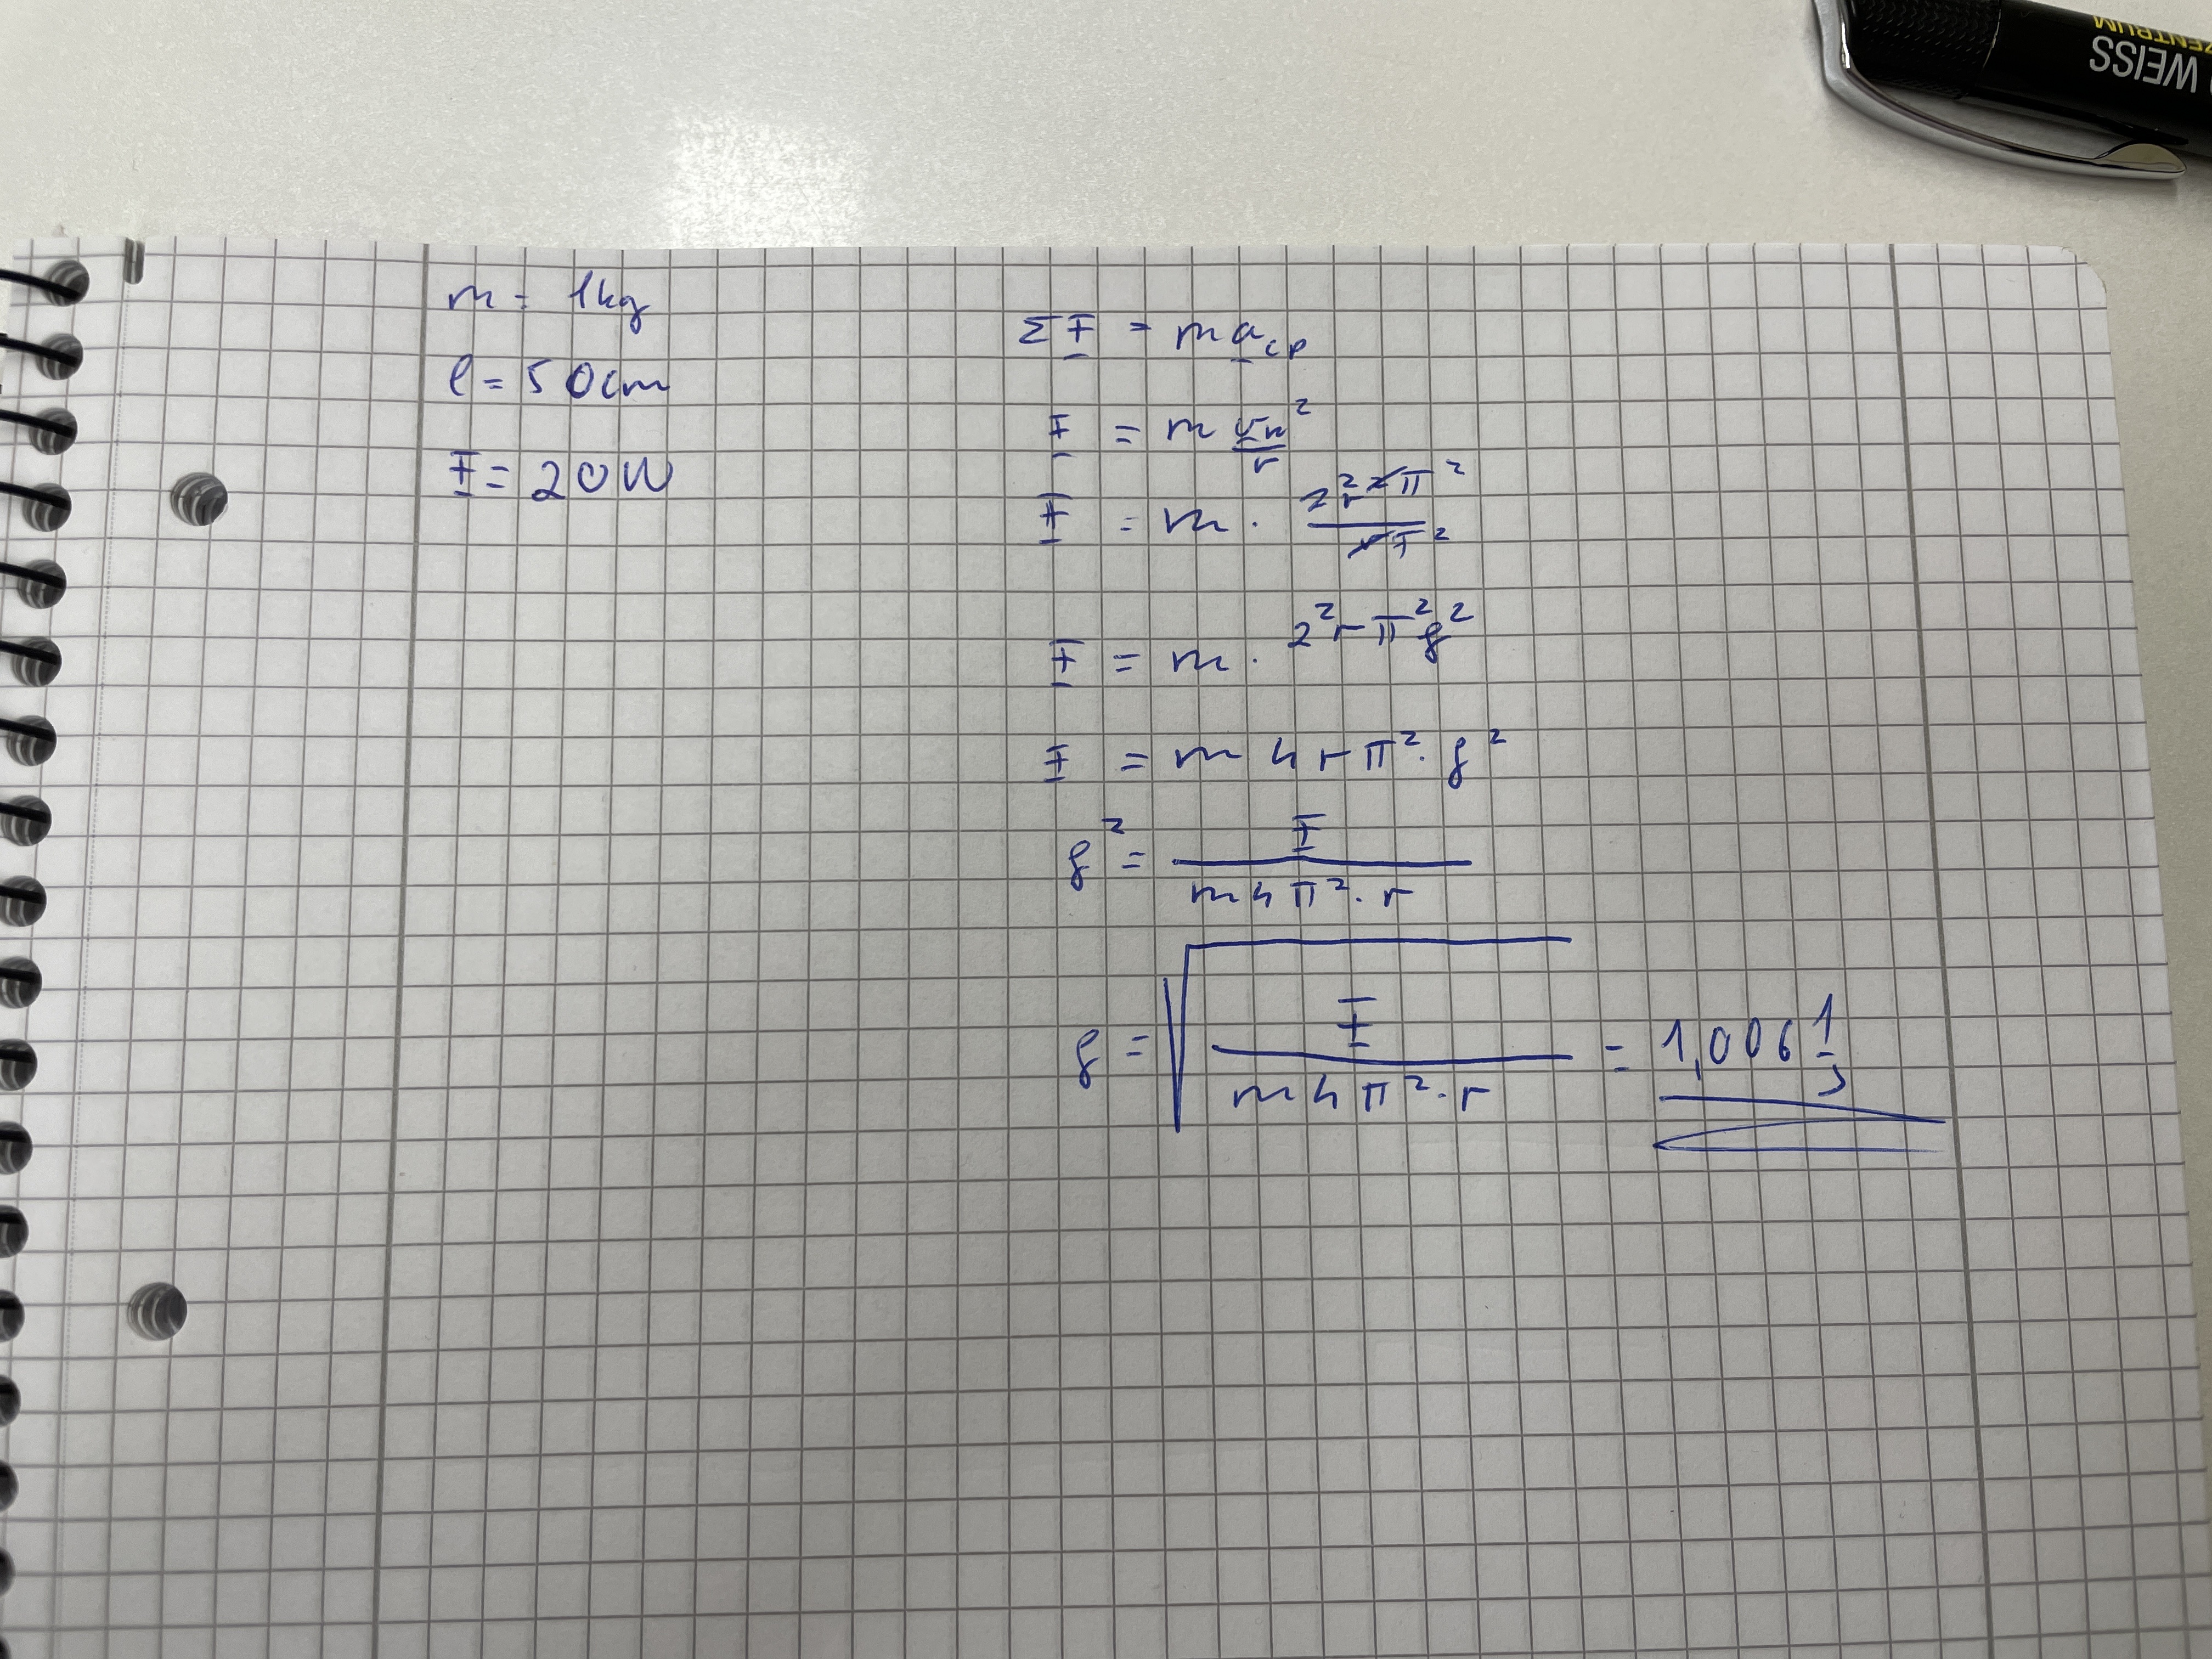 WEISS
ZENTRUM
m = 1kg
l = 50cm
F = 20N
ΣF = m a_cp
F = m v_n² / r
F = m · 2² r² π² / r T²
F = m · 2² r π² f²
F = m 4 r π² · f²
f² = F / m 4 π² · r
f = √(F / m 4 π² · r) = 1,006 1/s